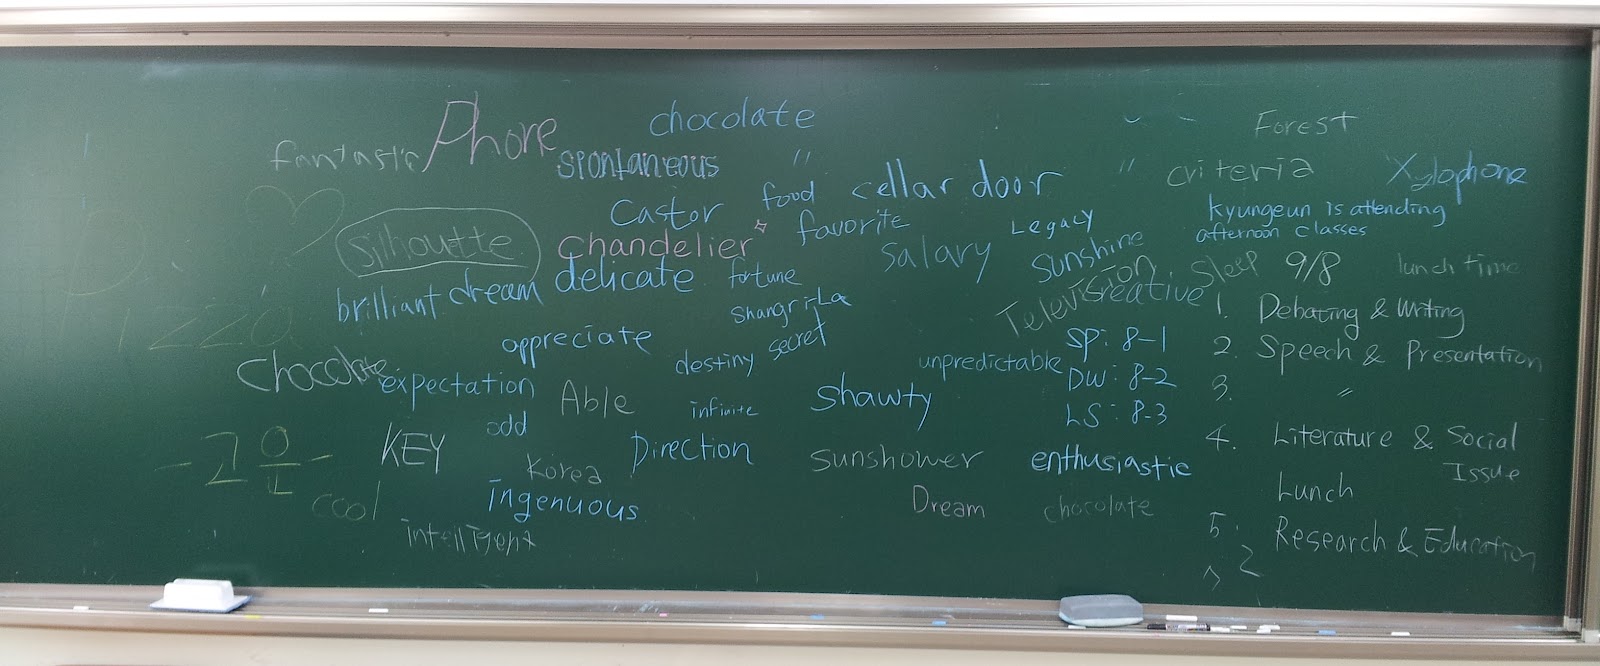 chocolate
Phone
fantastic
spontaneous
"
"
Forest
criteria
Xylophone
food
cellar door
Castor
favorite
Legacy
kyungeun is attending
afternoon classes
silhoutte
chandelier
salary
sunshine
sleep
9/8
lunch time
brilliant
dream
delicate
fortune
Television
creative
Shangri-La
Pizza
appreciate
destiny
secret
unpredictable
SP: 8-1
DW: 8-2
LS: 8-3
1. Debating & Writing
2. Speech & Presentation
3. "
4. Literature & Social
Issue
Lunch
5. Research & Education
chocolate
expectation
Able
infinite
shawty
odd
KEY
Direction
sunshower
enthusiastic
-고운-
Korea
cool
ingenuous
Dream
chocolate
intelligent